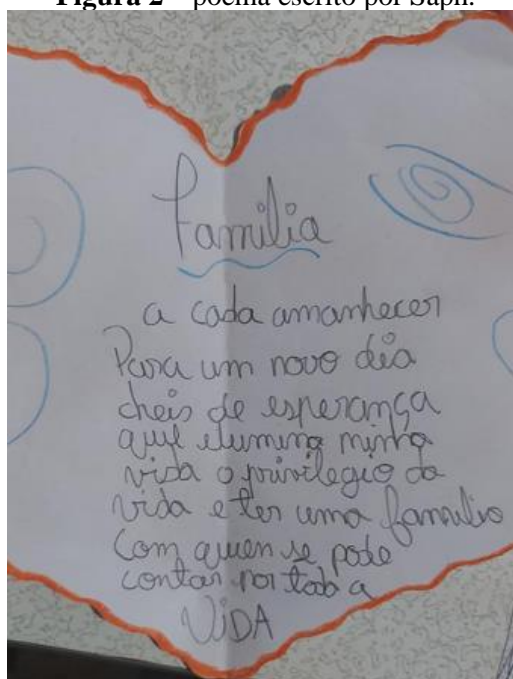 Figura 2 – poema escrito por Saph.
Familia
a cada amanhecer
Para um novo dia
cheio de esperança
que ilumina minha
vida o privilegio da
vida e ter uma familia
com quem se pode
contar por toda a
ViDA